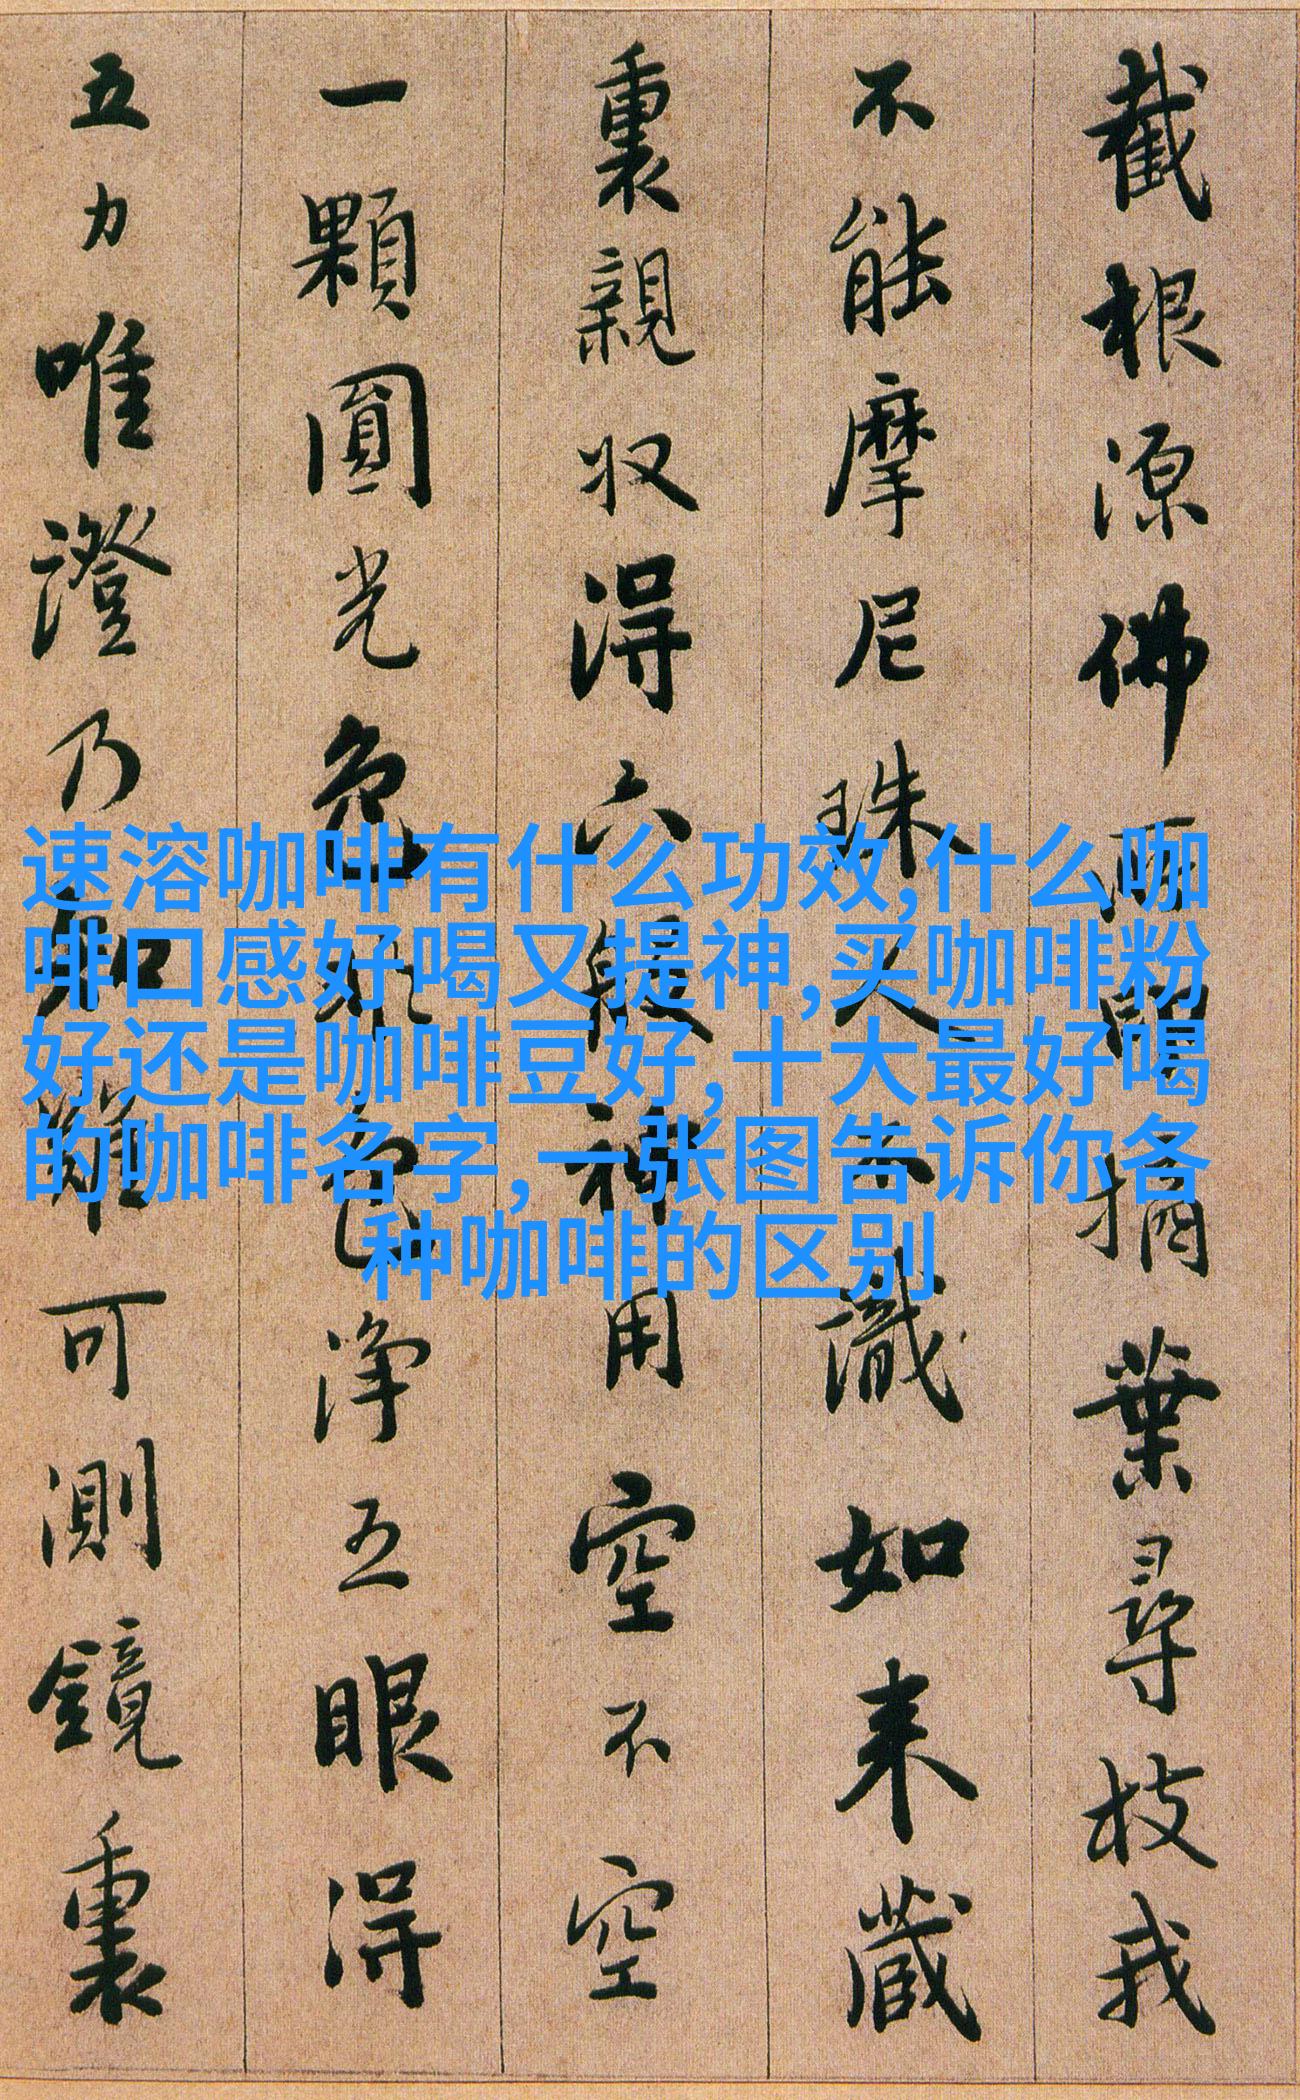 截根源佛所印摘葉尋枝我
不能摩尼珠人不識如来藏
裏親収得六般神用空不空
一顆圓光色非色淨五眼得
五力唯證乃知難可測鏡裏
速溶咖啡有什么功效,什么咖
啡口感好喝又提神,买咖啡粉
好还是咖啡豆好,十大最好喝
的咖啡名字,一张图告诉你各
种咖啡的区别